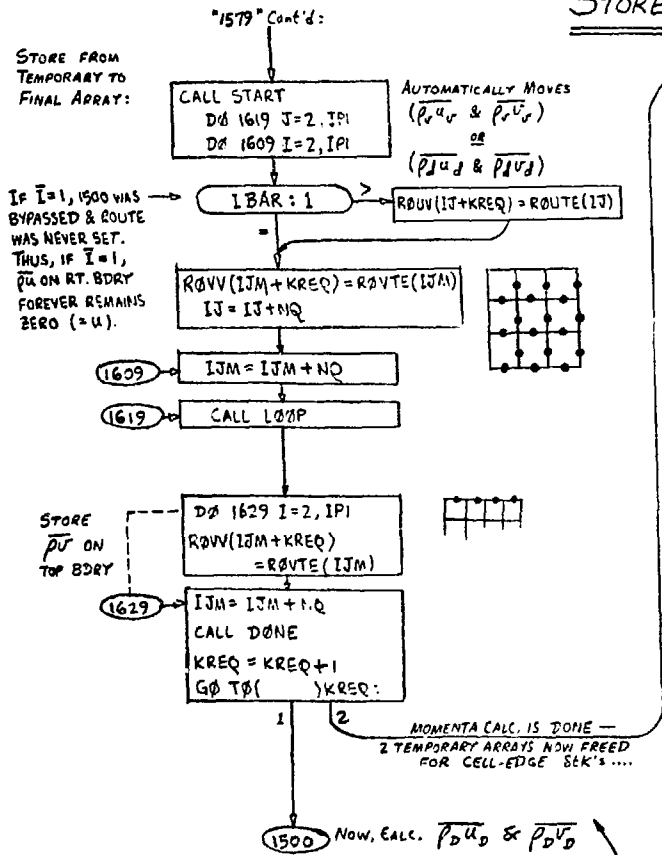 "1579" Cont'd:
STORE
STORE FROM
TEMPORARY TO
FINAL ARRAY:
CALL START
DØ 1619 J=2, JP1
DØ 1609 I=2, IP1
AUTOMATICALLY MOVES
(ρᵥuᵥ & ρᵥvᵥ)
OR
(ρ_d u_d & ρ_d v_d)
IF Ī=1, 1500 WAS
BYPASSED & ROUTE
WAS NEVER SET.
THUS, IF Ī=1,
ρu ON RT. BDRY
FOREVER REMAINS
ZERO (=u).
IBAR : 1
>
RØUV(IJ+KREQ)=RØUTE(IJ)
=
RØVV(IJM+KREQ)=RØVTE(IJM)
IJ=IJ+NQ
1609
IJM=IJM+NQ
1619
CALL LØØP
STORE
ρv ON
TOP BDRY
DØ 1629 I=2, IP1
RØVV(IJM+KREQ)
=RØVTE(IJM)
1629
IJM=IJM+NQ
CALL DØNE
KREQ=KREQ+1
GØ TØ( )KREQ:
1
2
MOMENTA CALC. IS DONE —
2 TEMPORARY ARRAYS NOW FREED
FOR CELL-EDGE SIEK's ....
1500
NOW, CALC. ρ_D u_D & ρ_D v_D